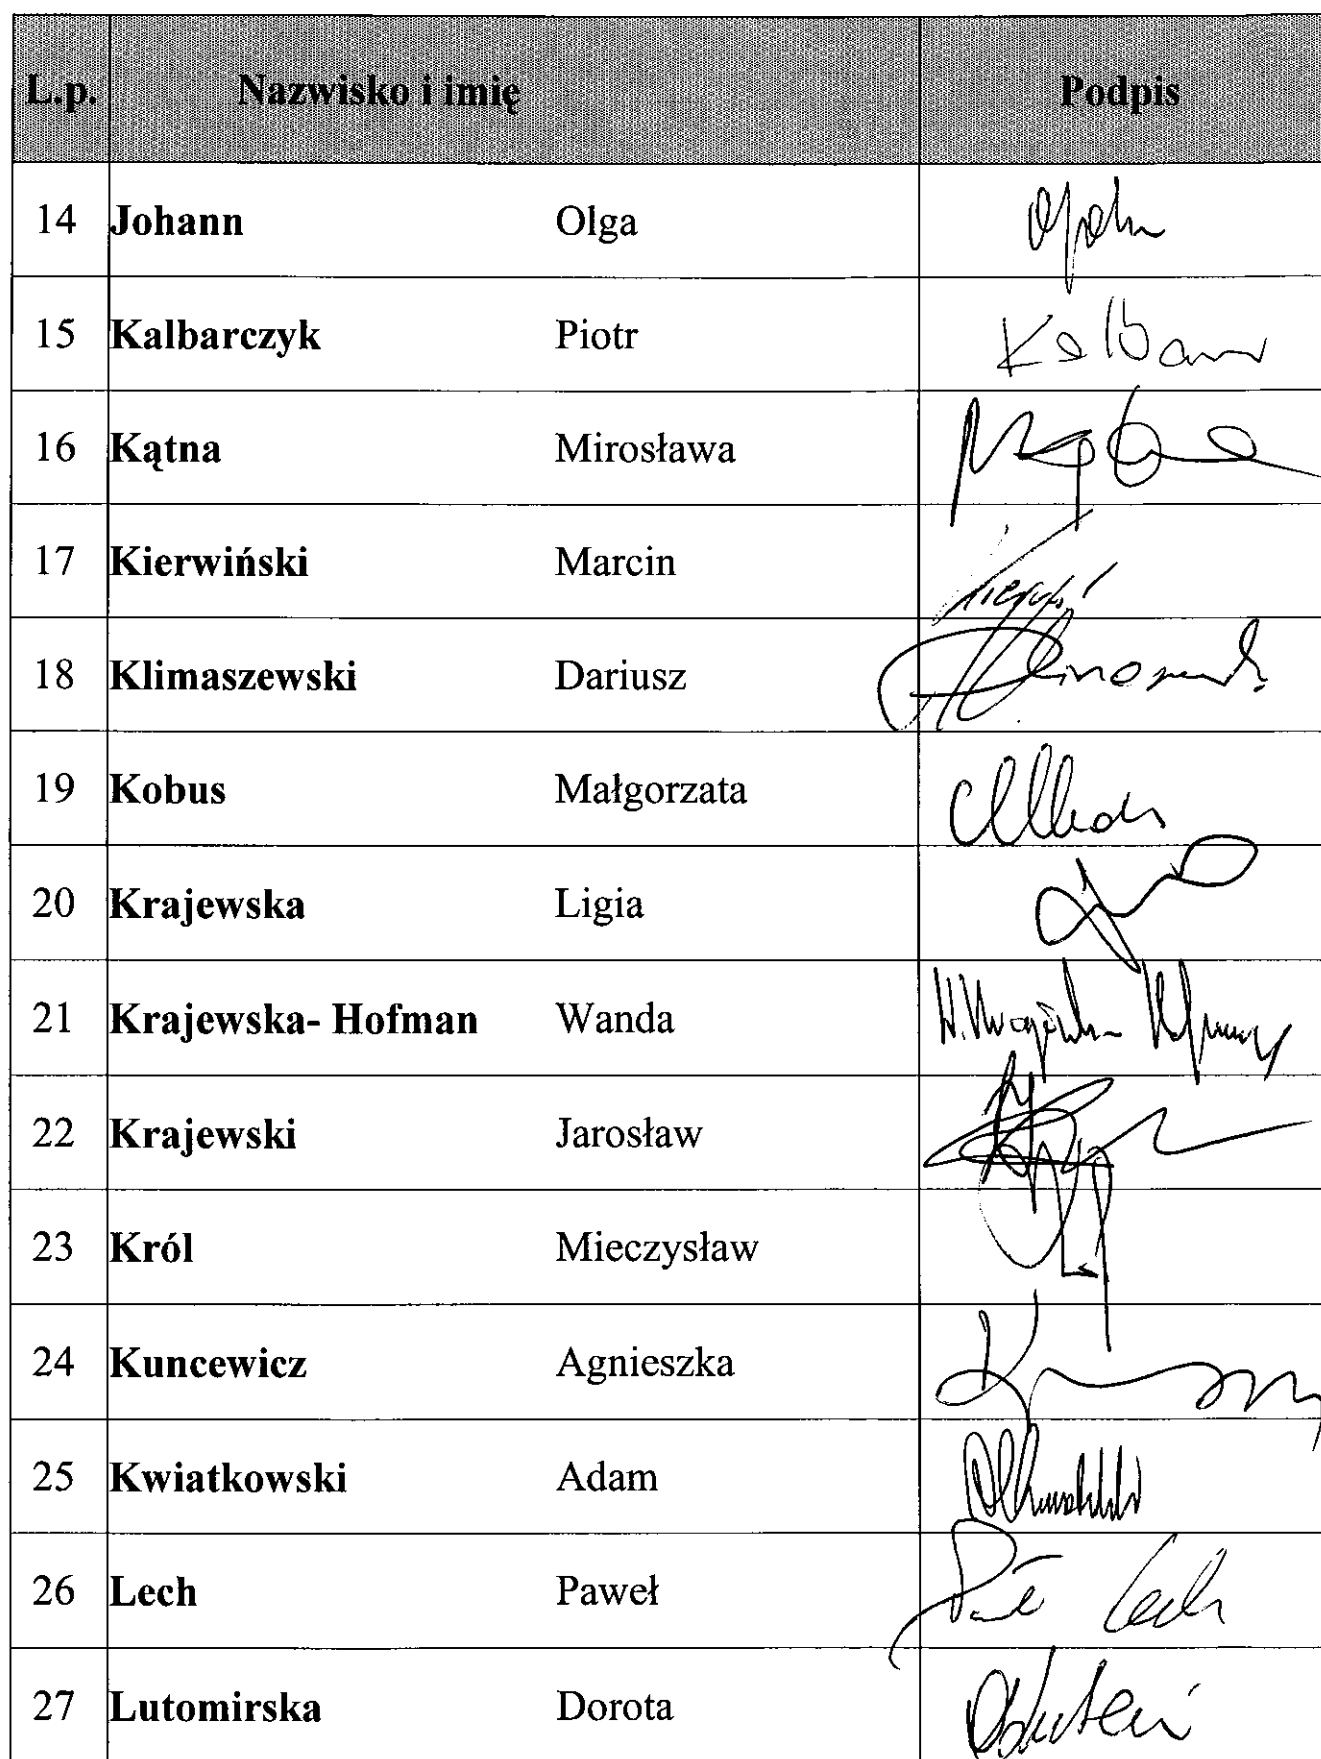 L.p. Nazwisko i imię Podpis
14 Johann Olga
15 Kalbarczyk Piotr
16 Kątna Mirosława
17 Kierwiński Marcin
18 Klimaszewski Dariusz
19 Kobus Małgorzata
20 Krajewska Ligia
21 Krajewska- Hofman Wanda
22 Krajewski Jarosław
23 Król Mieczysław
24 Kuncewicz Agnieszka
25 Kwiatkowski Adam
26 Lech Paweł Lech
27 Lutomirska Dorota